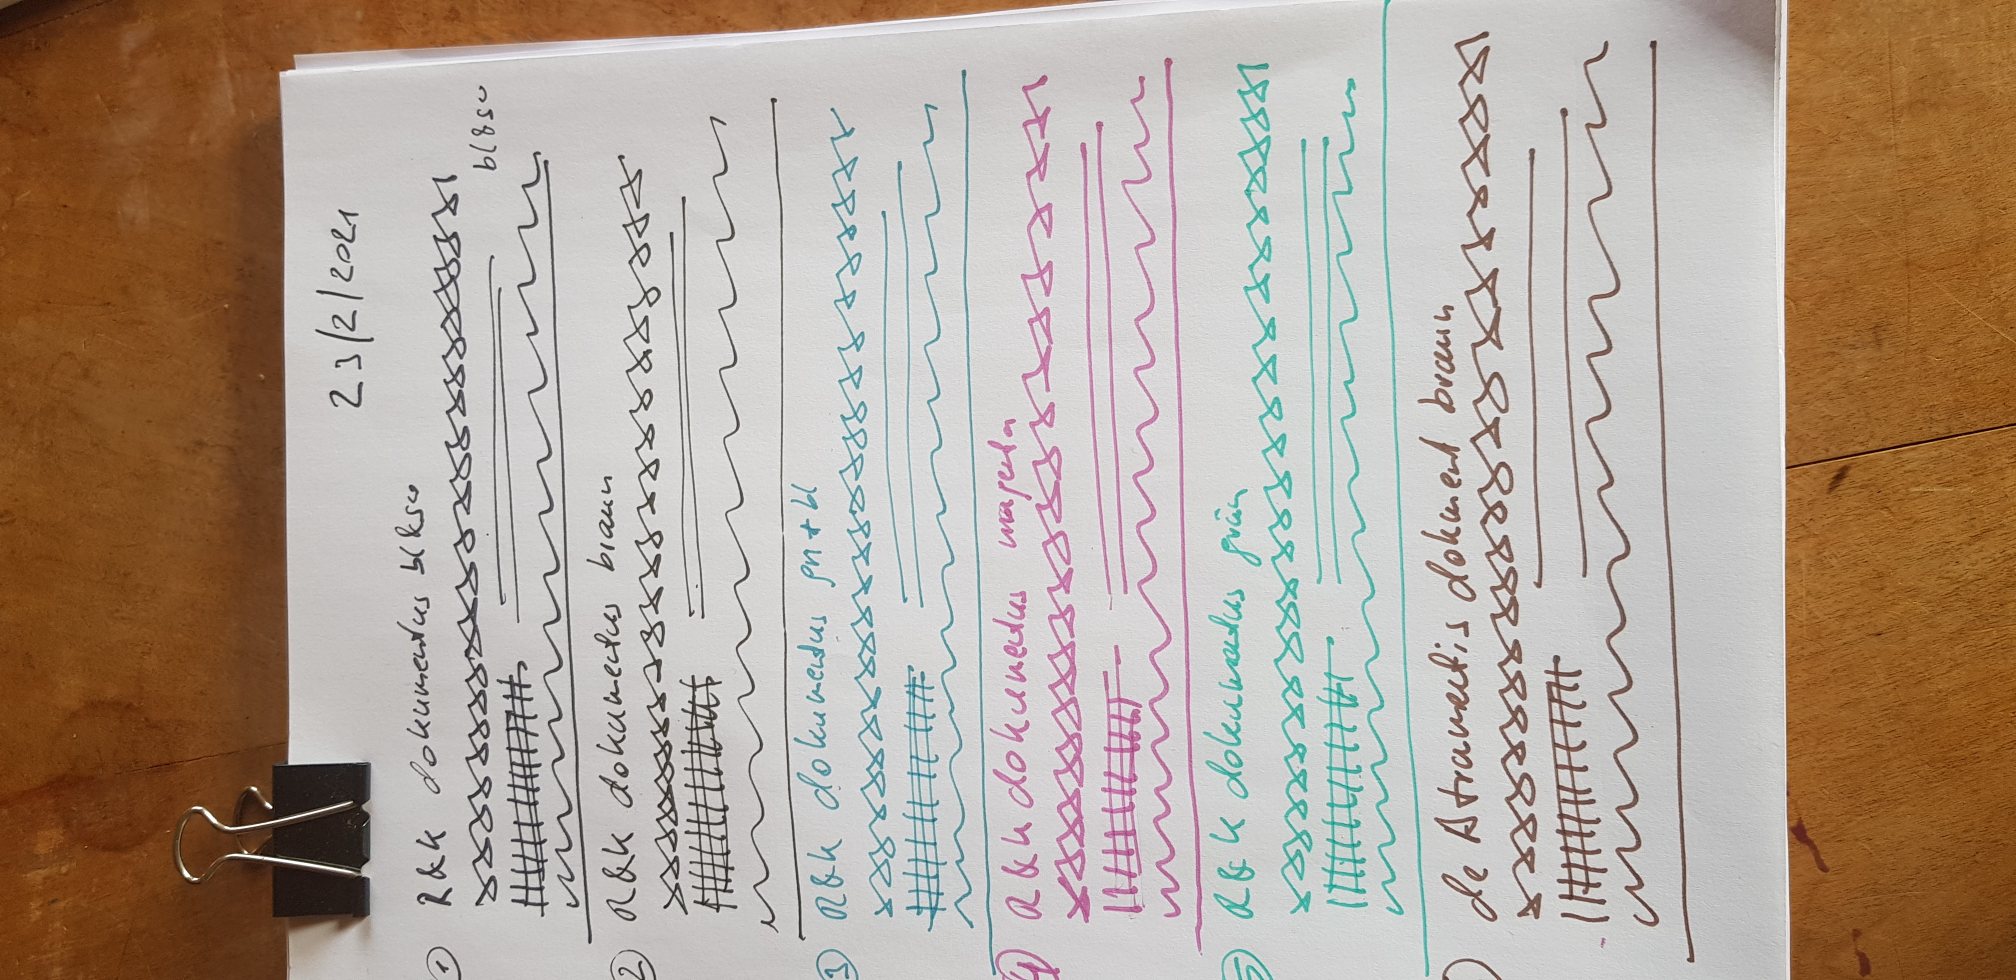 23/2/2021
① R&K dokumentus blkso
bl&so
② R&K dokumentus braun
③ R&K dokumentus gn+bl
④ R&K dokumentus magenta
⑤ R&K dokumentus grün
de Atramentis dokument braun